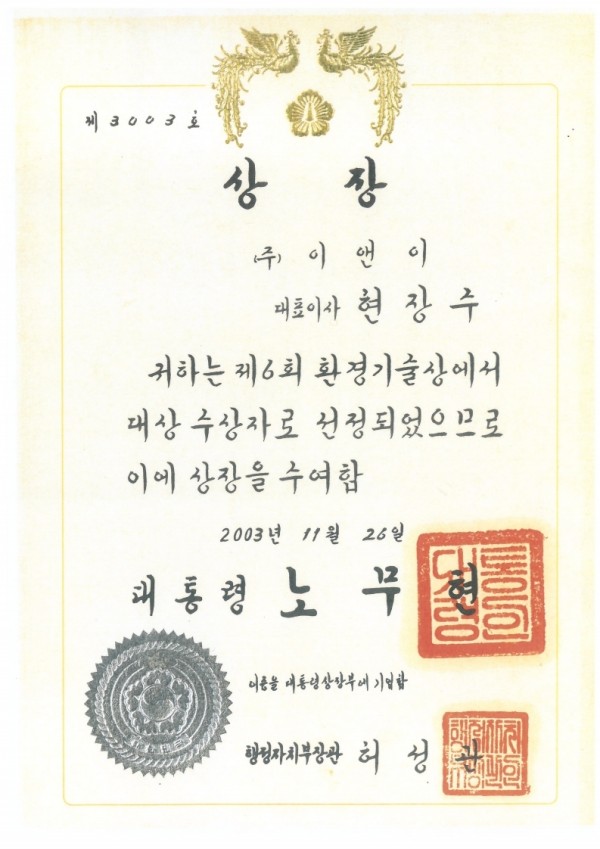 제 3003 호
상 장
(주) 이 앤 이
대표이사 현 장 수
귀하는 제6회 환경기술상에서
대상 수상자로 선정되었으므로
이에 상장을 수여함
2003년 11월 26일
대통령 노 무 현
이름을 대통령상장부에 기입함
행정자치부장관 허 성 관